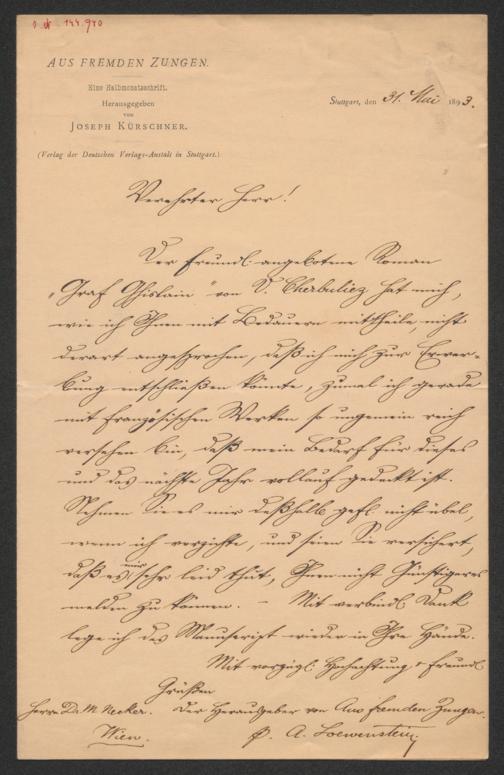 144.940
AUS FREMDEN ZUNGEN.
Eine Halbmonatsschrift.
Herausgegeben
von
JOSEPH KÜRSCHNER.
(Verlag der Deutschen Verlags-Anstalt in Stuttgart.)
Stuttgart, den 31. Mai 1893.
Verehrter Herr!
Der freundl. angebotene Roman
„Graf Ghislain" von V. Cherbuliez hat mich,
wie ich Ihnen mit Bedauern mittheile, nicht
derart angesprochen, daß ich mich zur Erwer-
bung entschließen könnte, zumal ich gerade
mit französischen Werken so ungemein reich
versehen bin, daß mein Bedarf für dieses
und das nächste Jahr vollauf gedeckt ist.
Nehmen Sie es mir deßhalb gefl. nicht übel,
wenn ich verzichte, und seien Sie versichert,
daß es mir sehr leid thut, Ihnen nicht Günstigeres
melden zu können. – Mit verbindl. Dank
lege ich das Manuscript wieder in Ihre Hände.
Mit vorzügl. Hochachtung & freundl.
Grüßen
Herrn Dr. M. Necker. Der Herausgeber von Aus fremden Zungen.
Wien. A. Loewenstein